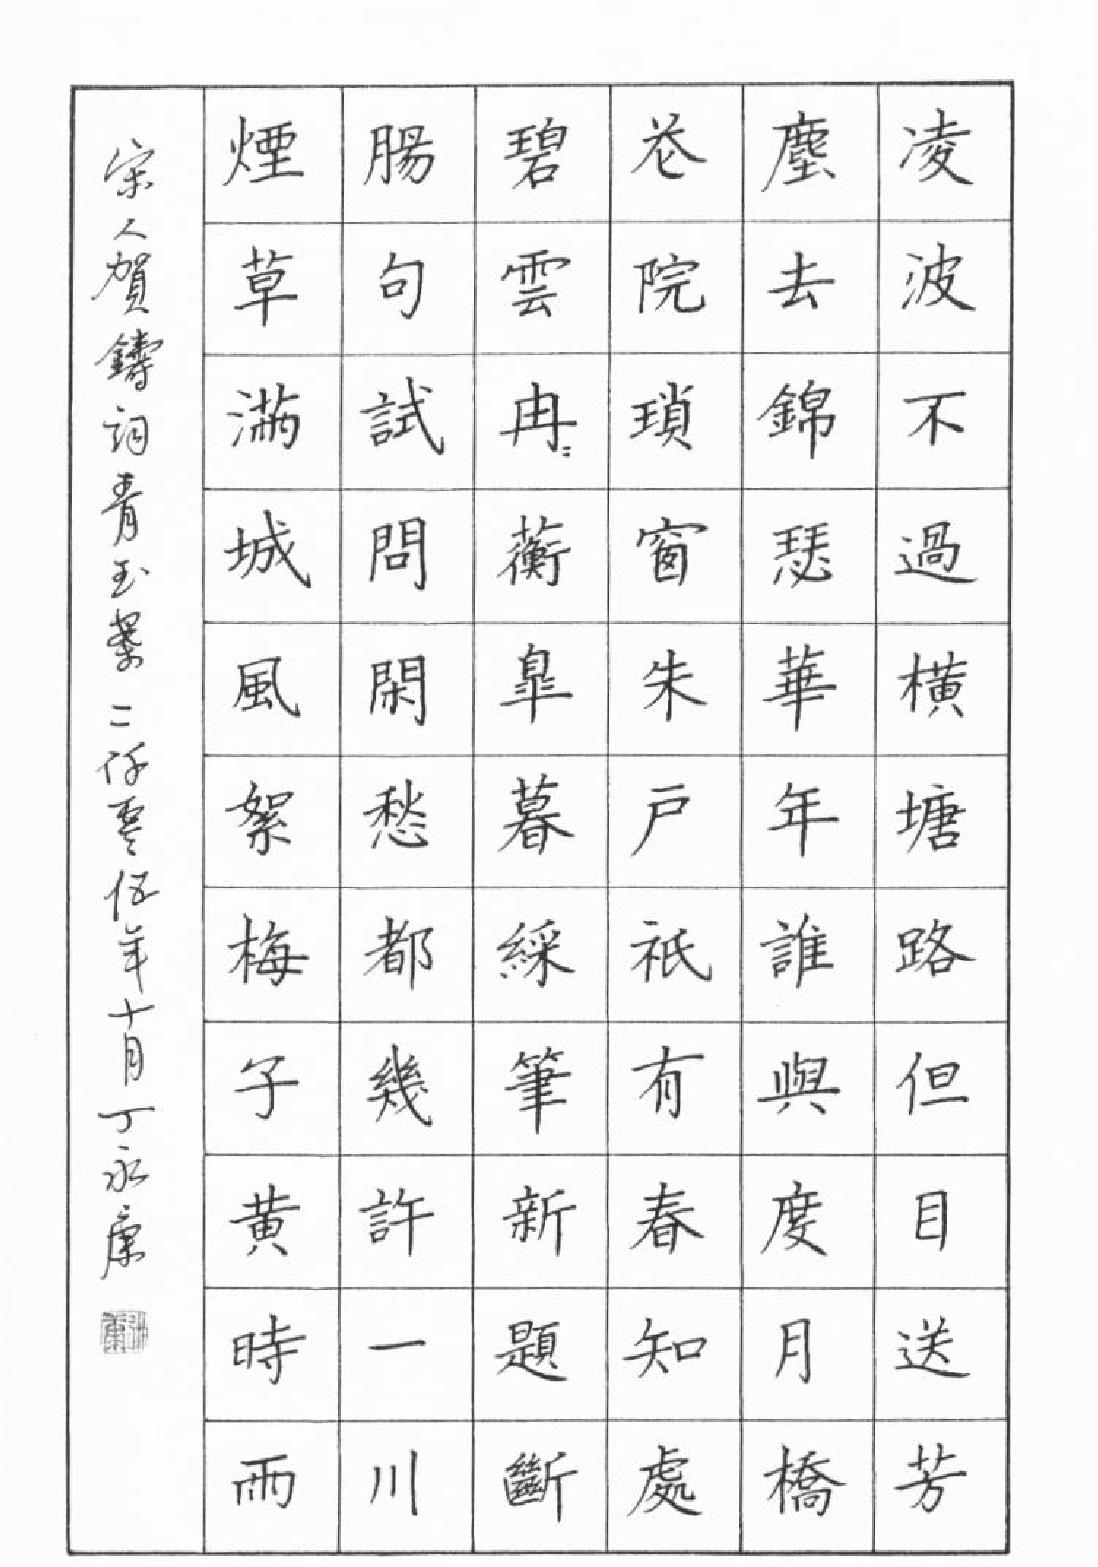 凌波不過橫塘路但目送芳
塵去錦瑟華年誰與度月橋
花院瑣窗朱戶祇有春知處
碧雲冉〻蘅皐暮綵筆新題斷
腸句試問閑愁都幾許一川
煙草滿城風絮梅子黄時雨
宋人賀鑄詞青玉案二仟零伍年十月丁永康